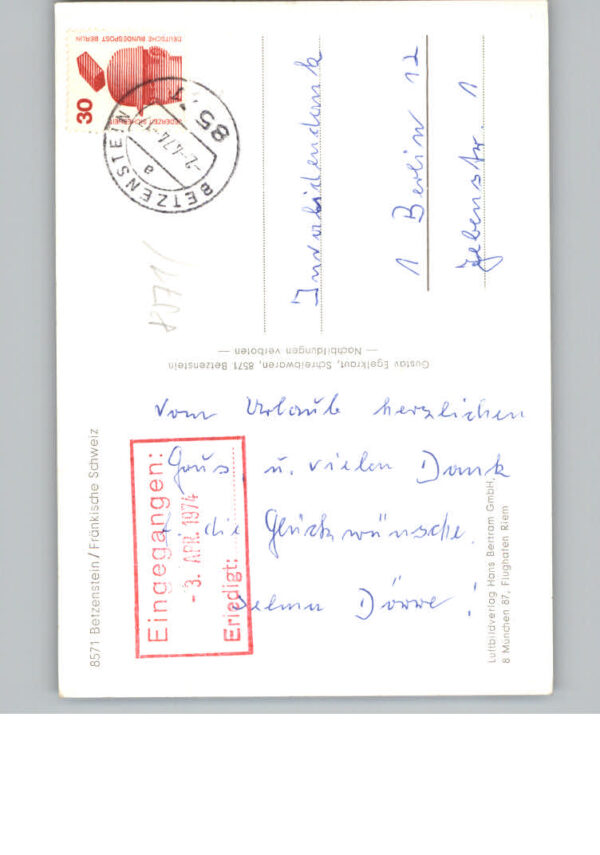 8571 Betzenstein/Fränkische Schweiz
Vom Urlaub herzlichen
Gruss u. vielen Dank
f. die Glückwünsche.
Dörwe!
Eingegangen:
- 3. APR. 1974
Erledigt:
Luftbildverlag Hans Bertram GmbH,
8 München 87, Flughafen Riem
Gustav Egelkraut, Schreibwaren, 8571 Betzenstein
— Nachbildungen verboten —
DEUTSCHE BUNDESPOST BERLIN
JEDERZEIT SICHERHEIT
30
8571
BETZENSTEIN
-2.4.74
a
Invalidendank
1 Berlin 12
Jebenstr. 1